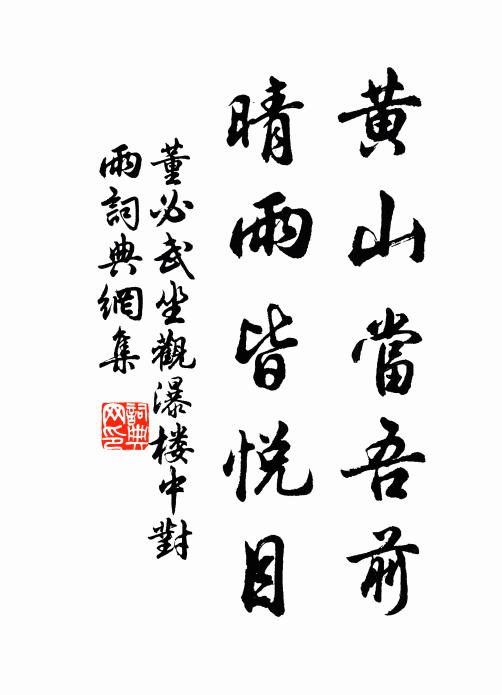 黄山當吾前
晴雨皆悦目
董必武坐觀瀑楼中對
雨詞典網集
詞典网印